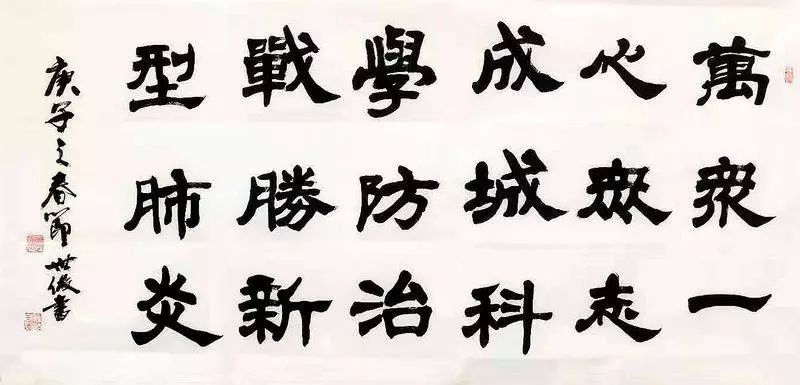 萬眾一
心眾志
成城科
學防治
戰勝新
型肺炎
庚子之春節世俊書